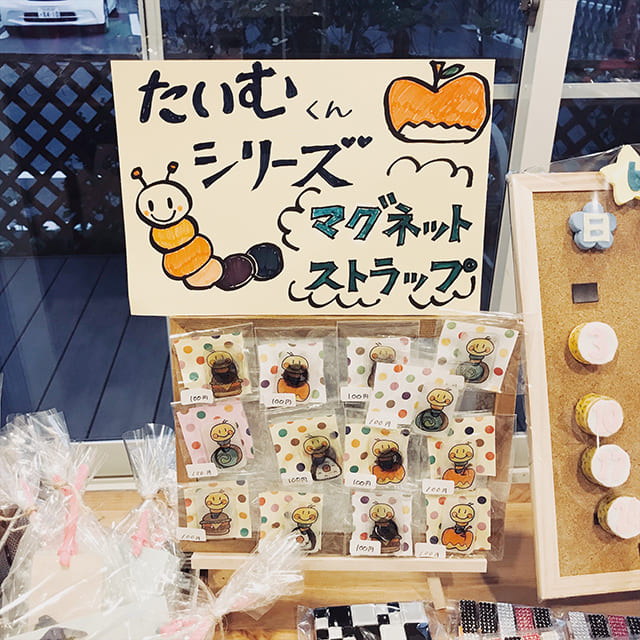 たいむくん
シリーズ
マグネット
ストラップ
100円
100円
100円
100円
100円
100円
100円
100円
100円
100円
100円
日